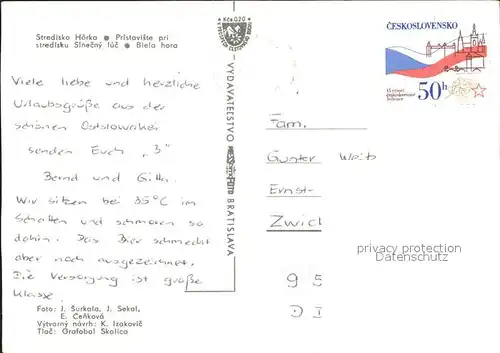 Stredisko Hôrka ● Prístavište pri
stredisku Slnečný lúč ● Biela hora
Viele liebe und herzliche
Urlaubsgrüße aus der
schönen Ostslowakei
senden Euch „3"
Bernd und Gitta.
Wir sitzen bei 35°C im
Schatten und schmoren so
dahin. Das Bier schmeckt
aber noch ausgezeichnet.
Die Versorgung ist große
Klasse.
Foto: J. Šurkala, J. Sekal,
E. Čeňková
Výtvarný návrh: K. Izakovič
Tlač: Grafobal Skalica
Kčs 0,20
VYDAVATEĽSTVO BRATISLAVA
ČESKOSLOVENSKO
50h
Fam.
Gunter
Ernst-
Zwick
95
DD
privacy protection
Datenschutz